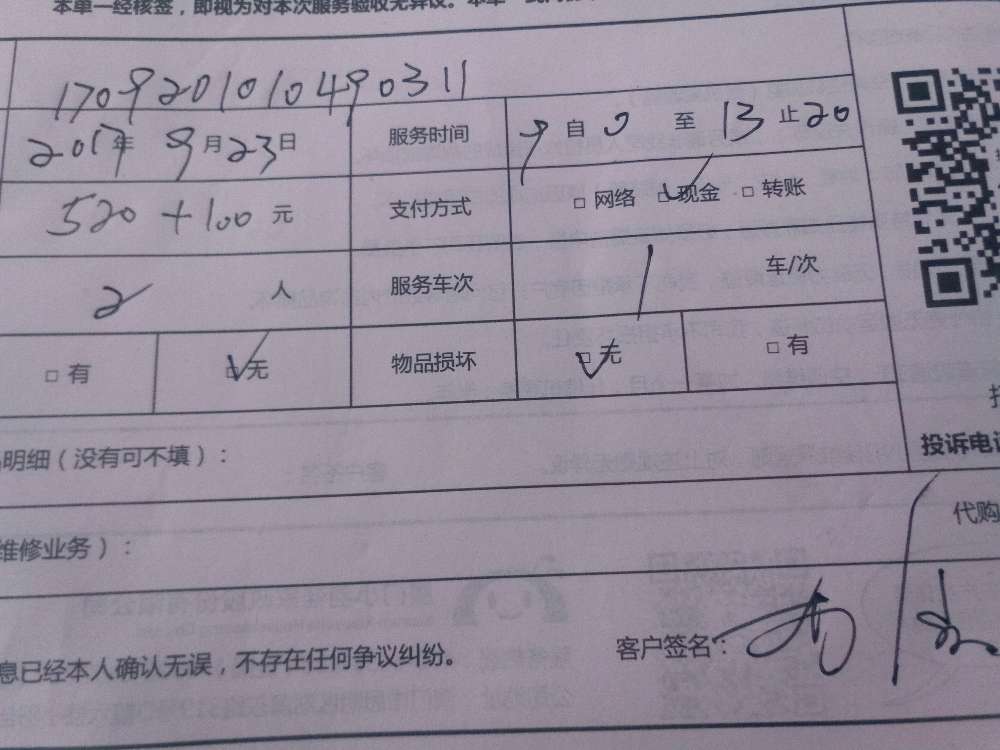 本单一经核签，即视为对本次服务验收无异议。本单一式
17092010104903 11
2017年 9月23日 服务时间 9 自 0 至 13 止 20
520 +100 元 支付方式 □ 网络 □ 现金 □ 转账
2 人 服务车次 1 车/次
□ 有 □ 无 物品损坏 □ 无 □ 有
明细（没有可不填）：
投诉电
维修业务）：
代购
息已经本人确认无误，不存在任何争议纠纷。
客户签名：